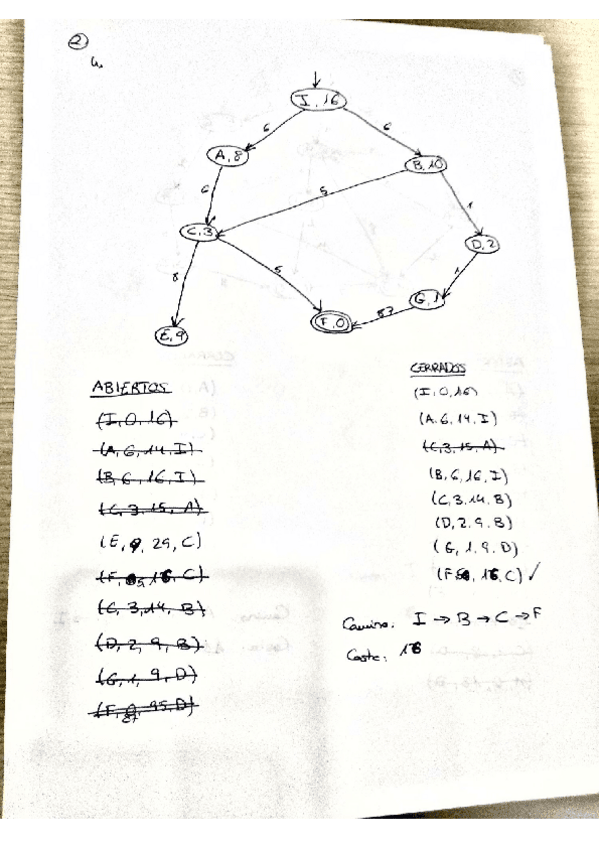 2
I, 16
6
6
A, 8
B, 10
6
5
1
C, 3
D, 2
8
5
1
G, 1
87
E, 9
F, 0
ABIERTOS
(I, 0, 16)
(A, 6, 14, I)
(B, 6, 16, I)
(C, 3, 15, A)
(E, 9, 29, C)
(C, 3, 14, B)
(D, 2, 9, B)
(G, 1, 9, D)
CERRADOS
(I, 0, 16)
(A, 6, 14, I)
(C, 3, 15, A)
(B, 6, 16, I)
(C, 3, 14, B)
(D, 2, 9, B)
(G, 1, 9, D)
Camino: I → B → C → F
Coste: 16